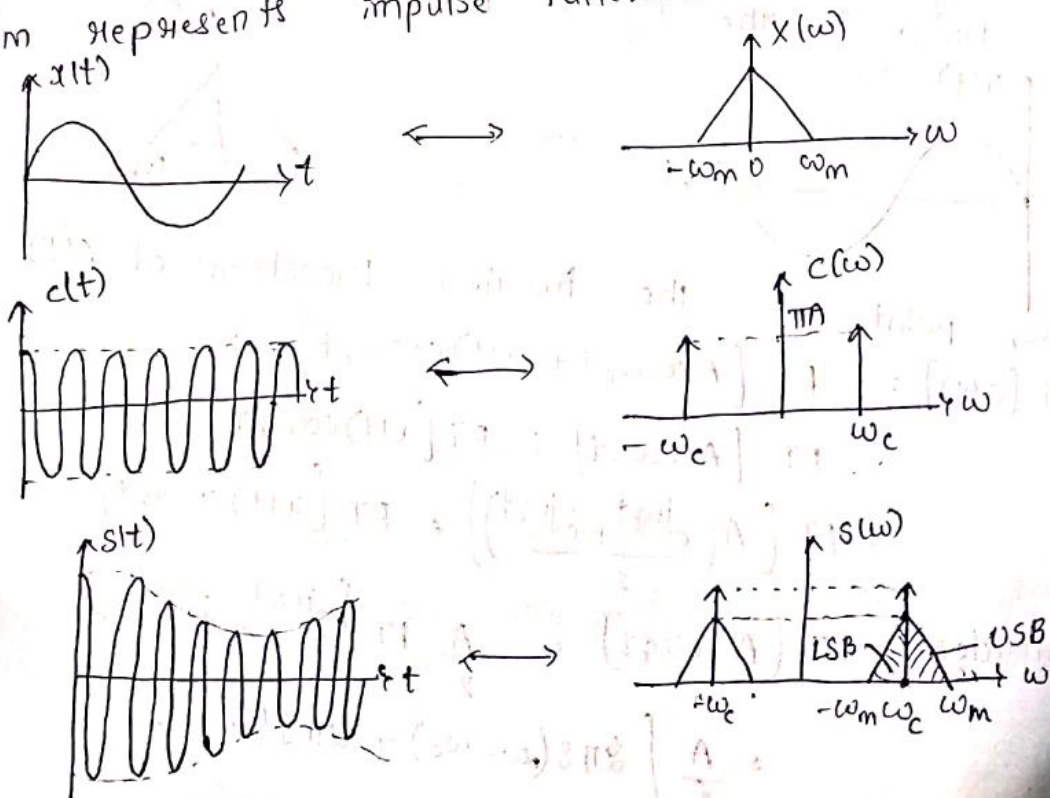 m represents impulse
x(t)
t
X(ω)
ω
-ωm 0 ωm
c(t)
t
C(ω)
πA
ω
-ωc ωc
s(t)
t
S(ω)
LSB USB
ω
-ωc -ωm ωc ωm